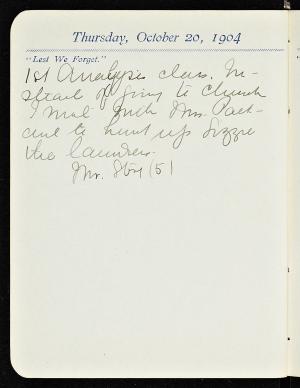 Thursday, October 20, 1904
"Lest We Forget."
1st Analysis class. In-
stead of going to Church
I went with Mrs.
to hunt up Lizzie
the laundress.
Mr. (5)